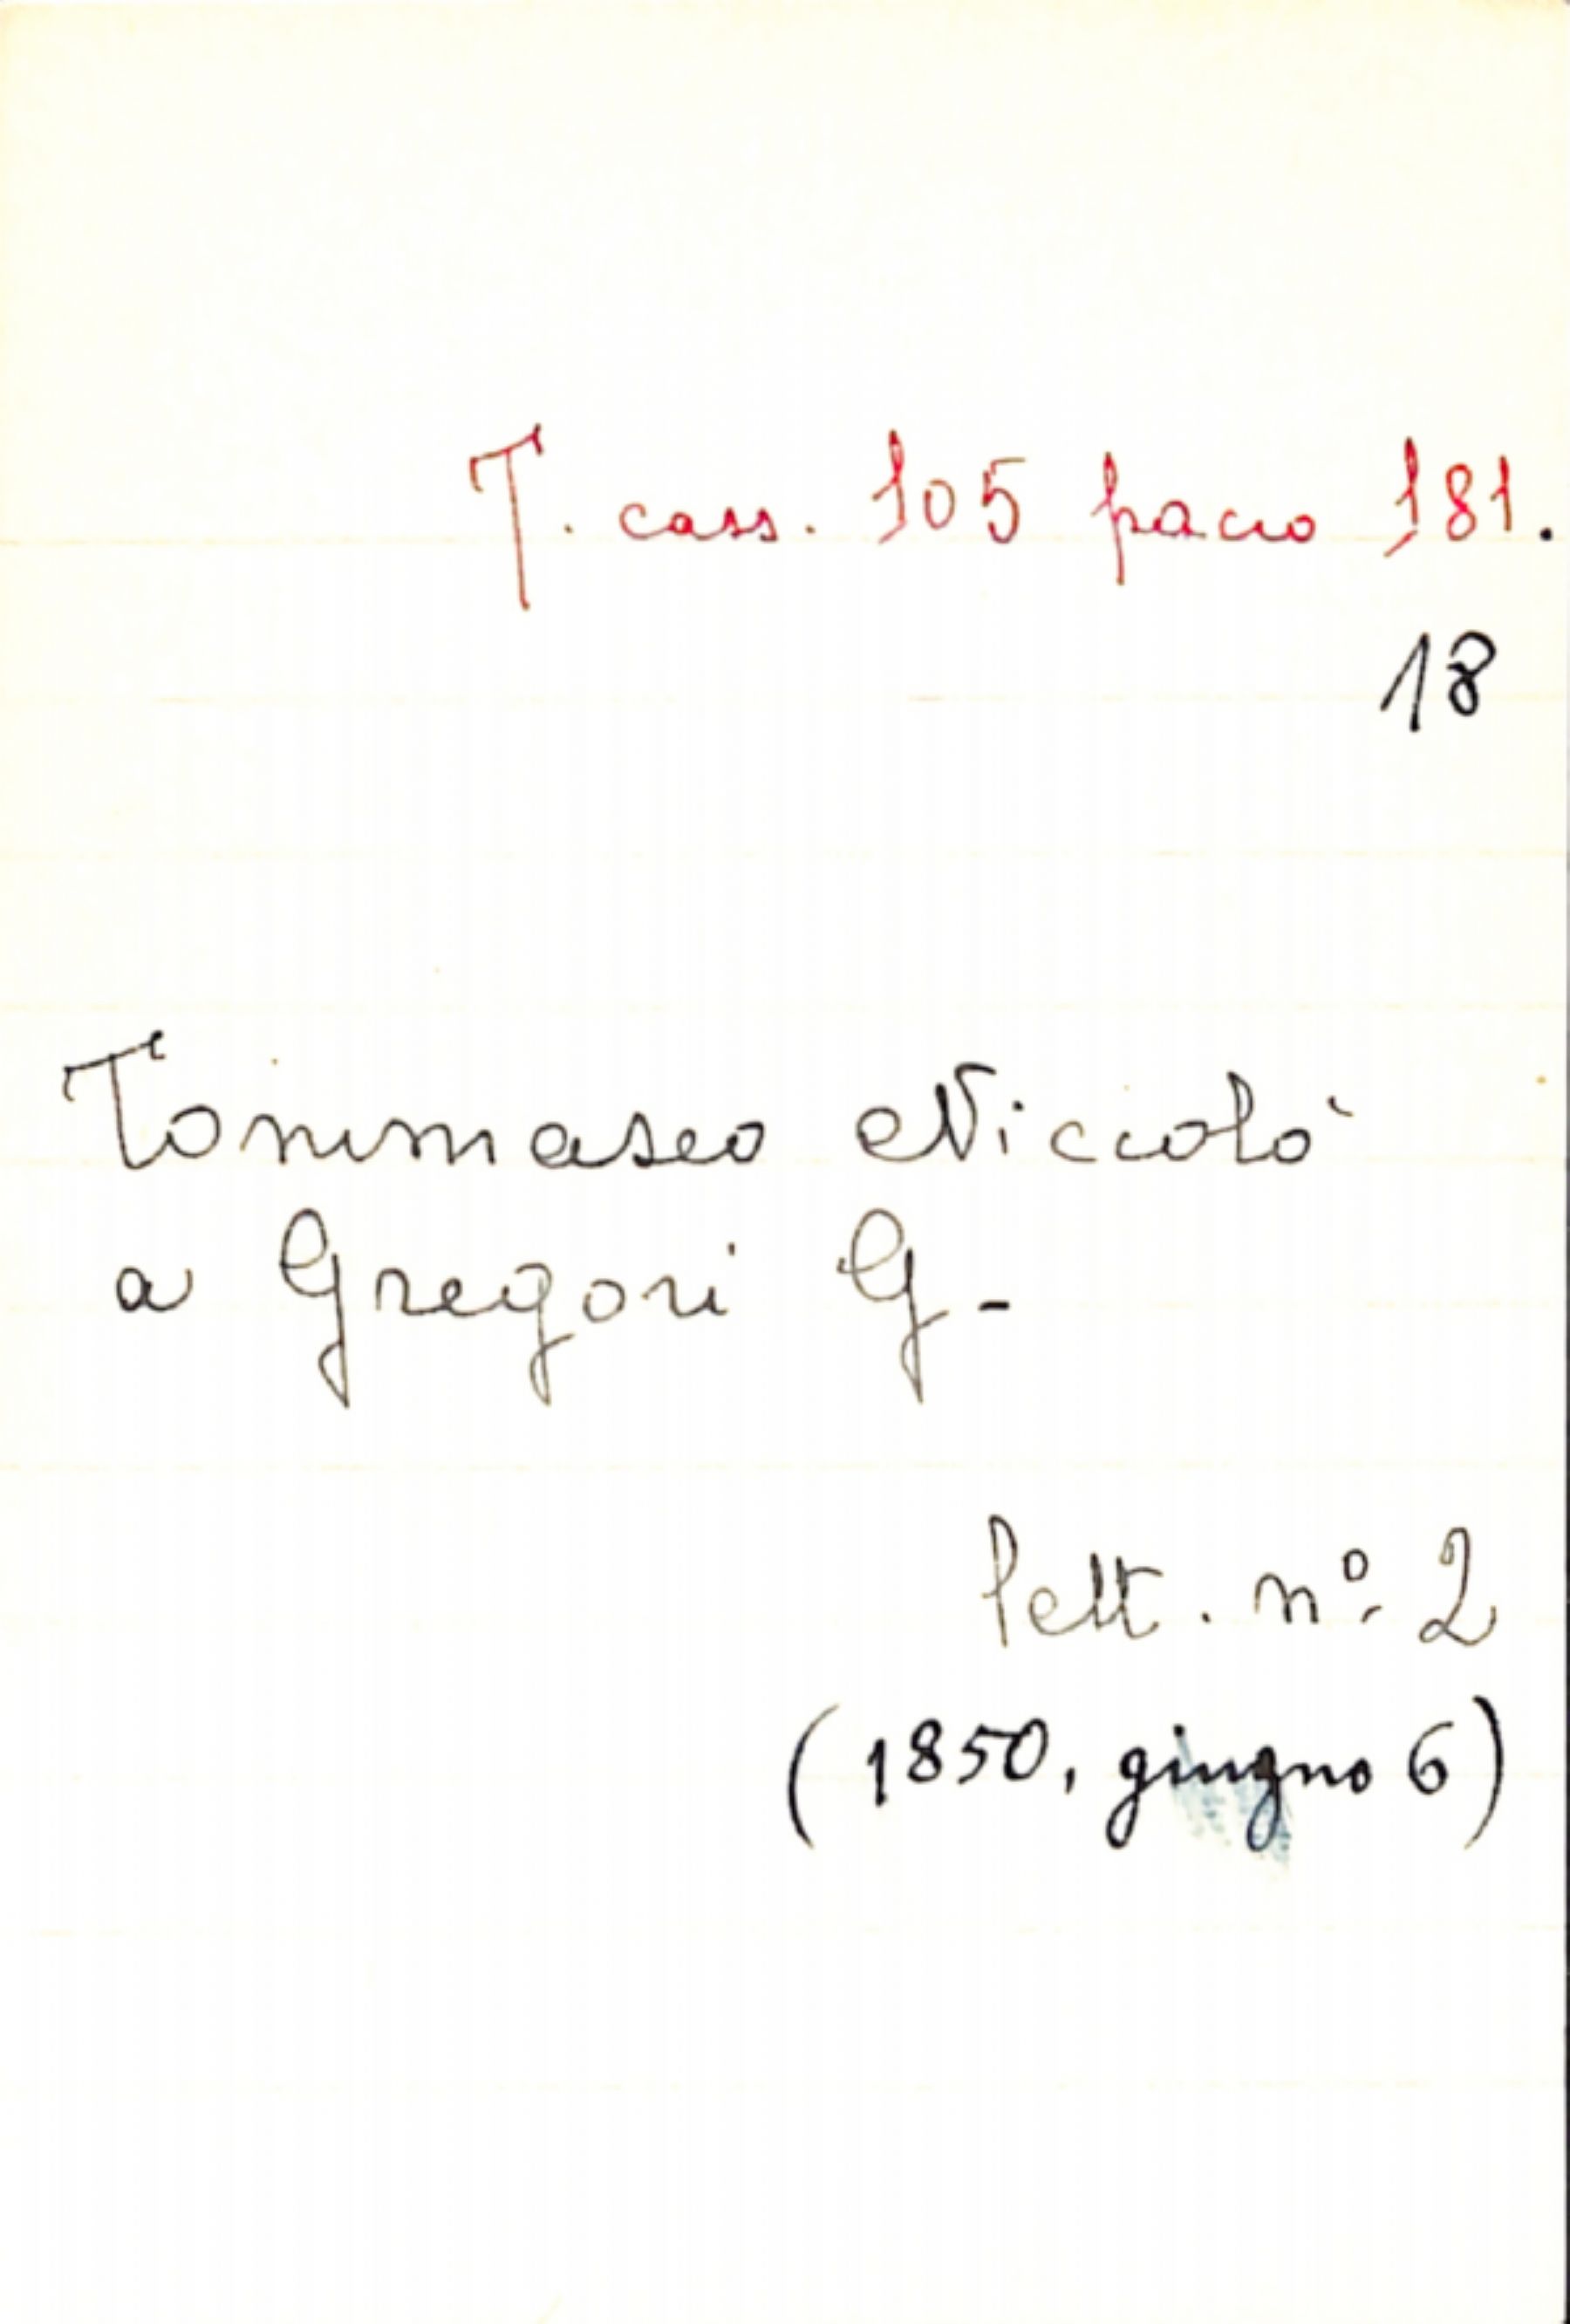 T. cass. 105 pacco 181.
18
Tommaseo Niccolò
a Gregori G.
lett. nº 2
(1850, giugno 6)